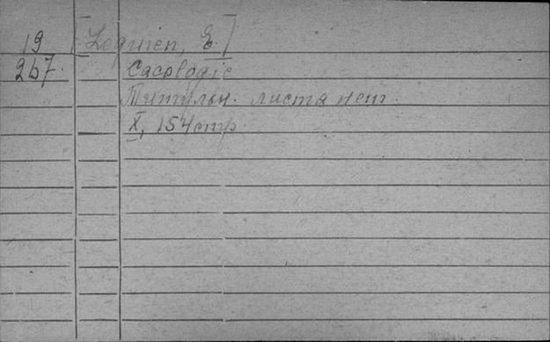 19 [Lequien, E.]
267. Cacologie
Титульн. листа нет.
X, 154 стр.